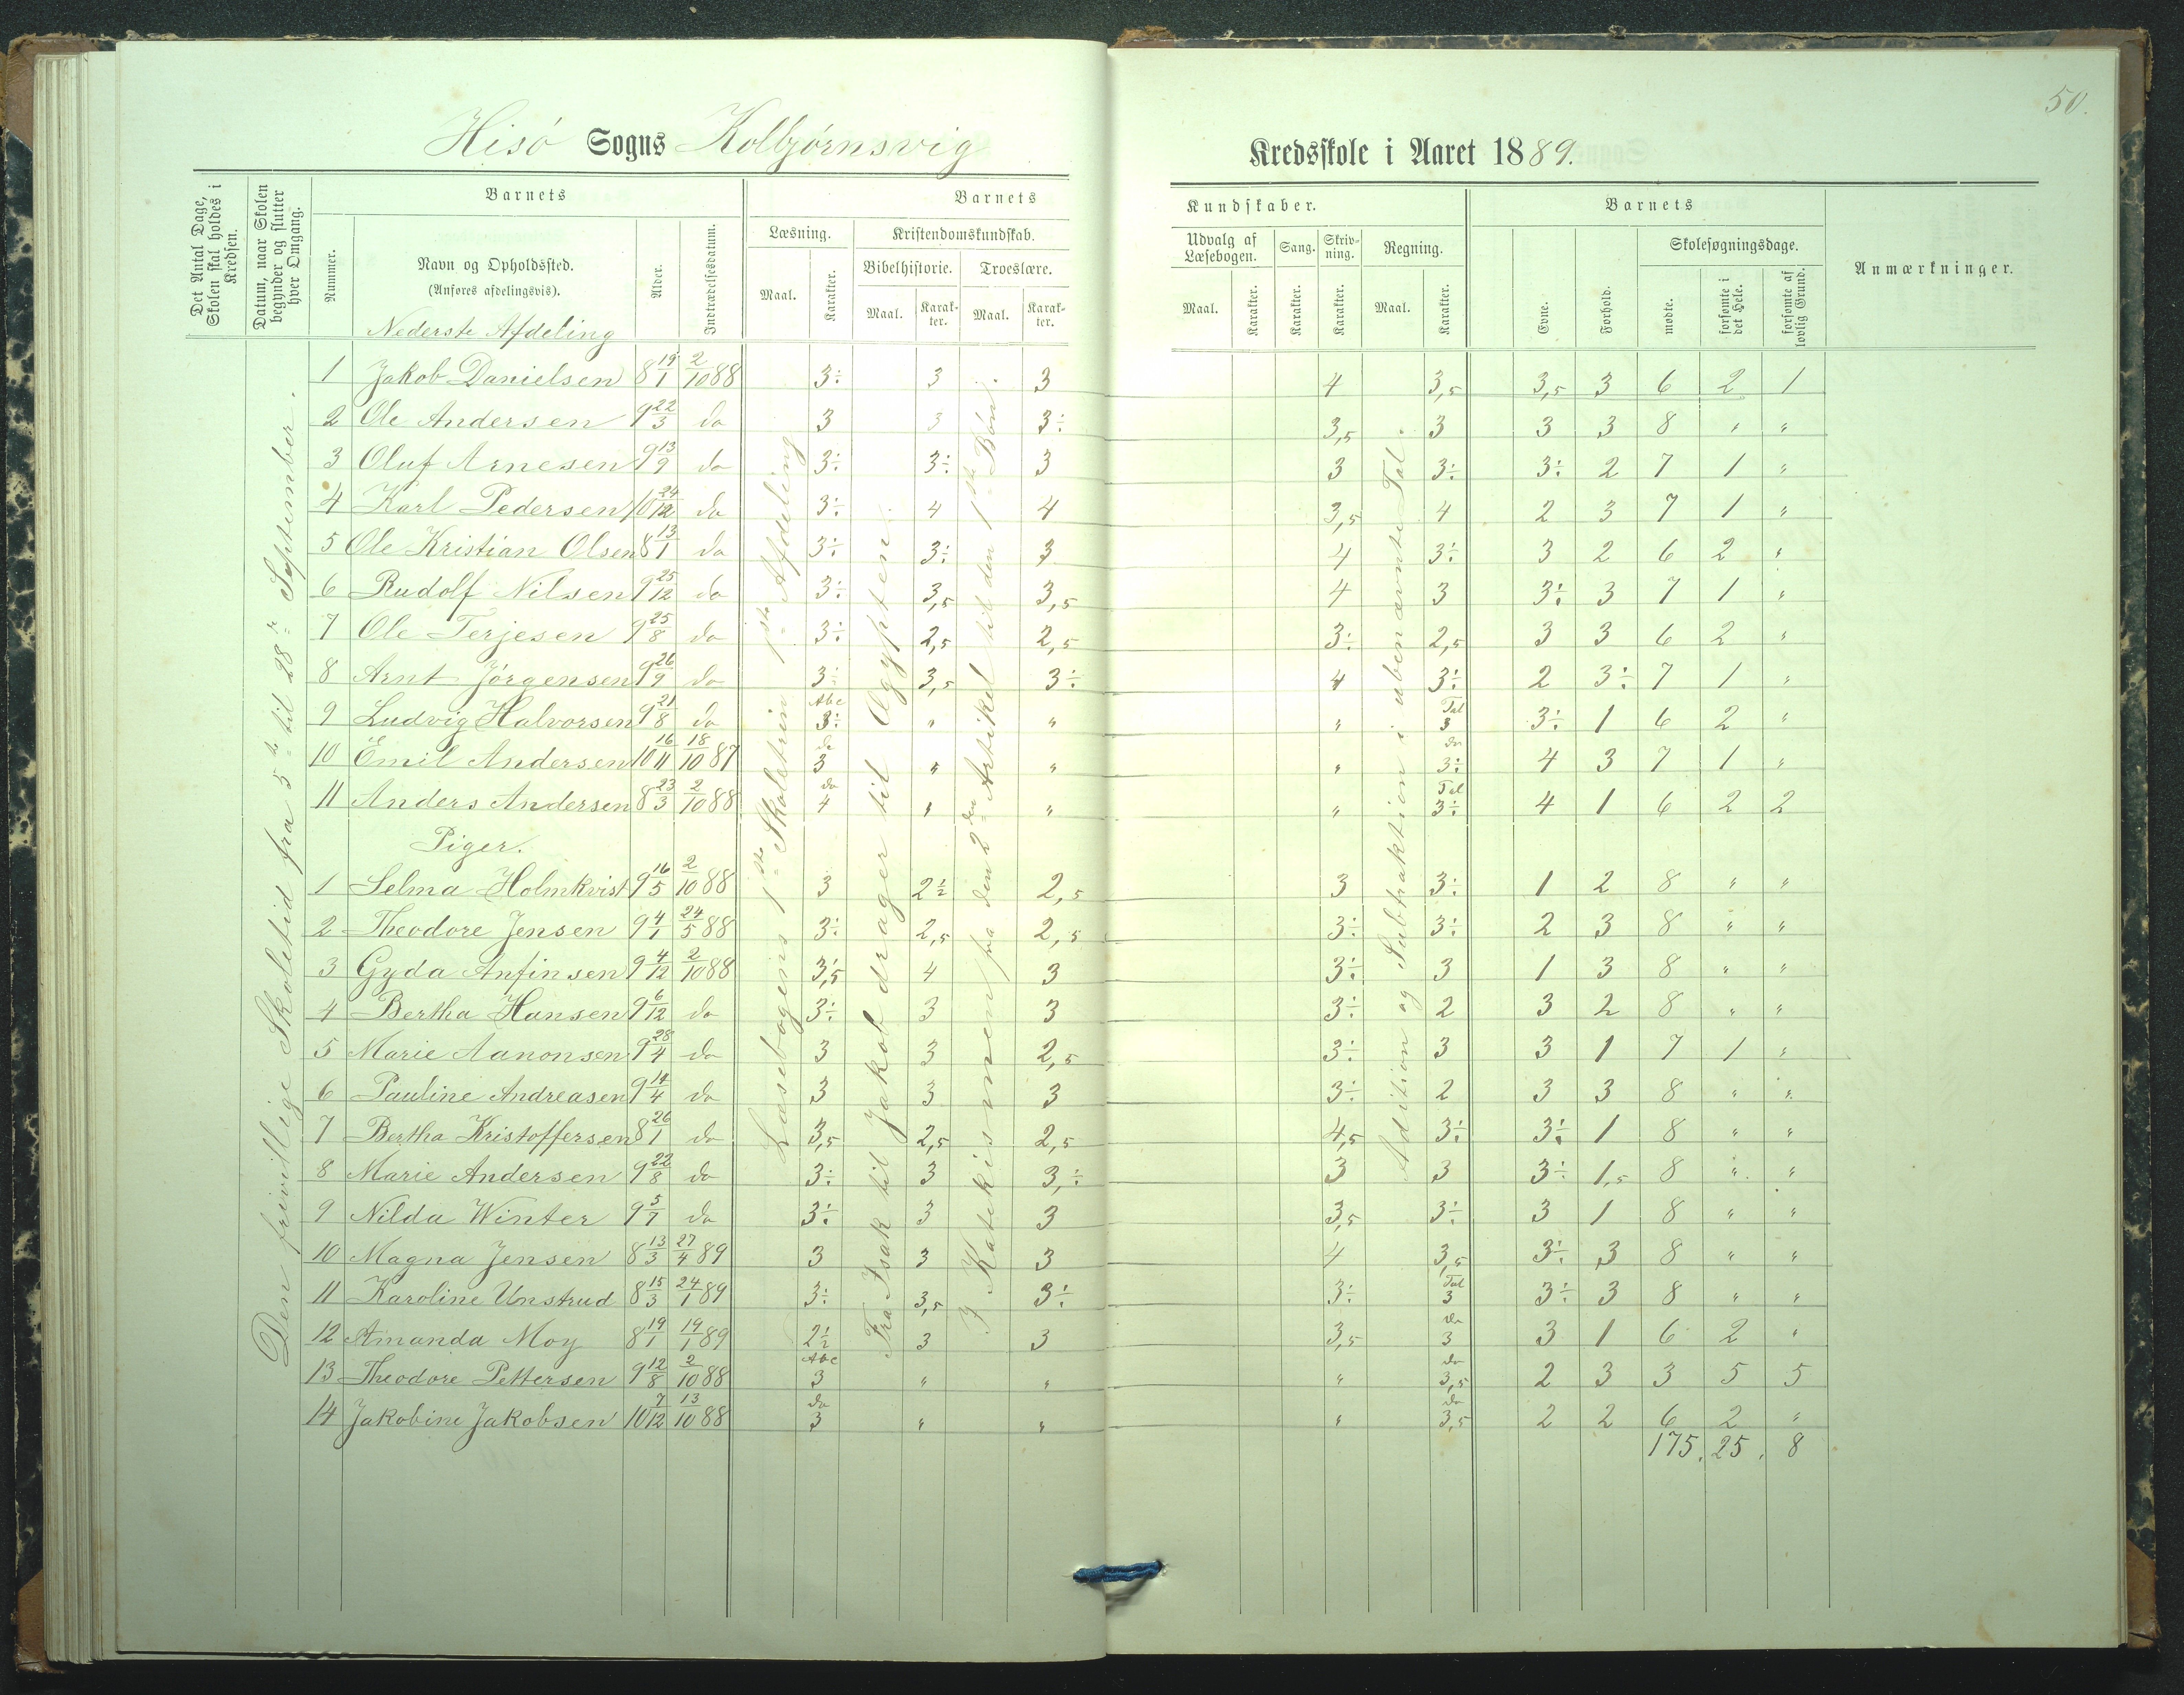 50.
Hisö Sogns Kolbjørnsvig Kredsskole i Aaret 1889.
Det Antal Dage, Skolen skal holdes i Kredsen.
Datum, naar Skolen begynder og slutter hver Omgang.
Barnets
Nummer.
Navn og Opholdssted.
(Anføres afdelingsvis).
Nederste Afdeling
Alder.
Indtrædelsesdatum.
Barnets Kundskaber.
Læsning.
Maal.
Karakter.
Kristendomskundskab.
Bibelhistorie.
Maal.
Karakter.
Troeslære.
Maal.
Karakter.
Udvalg af Læsebogen.
Maal.
Karakter.
Sang.
Karakter.
Skrivning.
Karakter.
Regning.
Maal.
Karakter.
Barnets
Evne.
Forhold.
Skolesøgningsdage.
mødte.
forsømte i det Hele.
forsømte af lovlig Grund.
Anmærkninger.
Den frivillige Skoletid fra 5te til 28de September.
Læsebogens 1ste Skoletrin 1ste Afdeling
Fra Isak til Jakob drager til Ægypten
I Katekismen fra den 2den Artikel til den 1ste Bøn
Addition og Subtraktion i ubenævnte Tal.
1 Jakob Danielsen 8 19/1 2/10 88 3÷ 3 3 4 3,5 3,5 3 6 2 1
2 Ole Andersen 9 22/3 do 3 3 3÷ 3,5 3 3 3 8 " "
3 Oluf Arnesen 9 13/9 do 3÷ 3÷ 3 3 3÷ 3÷ 2 7 1 "
4 Karl Pedersen 10 24/12 do 3÷ 4 4 3,5 4 2 3 7 1 "
5 Ole Kristian Olsen 8 13/1 do 3÷ 3÷ 3 4 3÷ 3 2 6 2 "
6 Rudolf Nilsen 9 25/12 do 3÷ 3,5 3,5 4 3 3÷ 3 7 1 "
7 Ole Terjesen 9 25/8 do 3÷ 2,5 2,5 3÷ 2,5 3 3 6 2 "
8 Arnt Jörgensen 9 26/9 do 3÷ 3,5 3÷ 4 3÷ 2 3÷ 7 1 "
9 Ludvig Halvorsen 9 21/8 do Abc 3÷ " " " Tal 3 3÷ 1 6 2 "
10 Emil Andersen 10 16/11 18/10 87 do 3 " " " do 3÷ 4 3 7 1 "
11 Anders Andersen 8 23/3 2/10 88 do 4 " " " Tal 3÷ 4 1 6 2 2
Piger.
1 Selma Holmkvist 9 16/5 2/10 88 3 2½ 2,5 3 3÷ 1 2 8 " "
2 Theodore Jensen 9 4/1 24/5 88 3÷ 2,5 2,5 3÷ 3÷ 2 3 8 " "
3 Gyda Anfinsen 9 4/12 2/10 88 3,5 4 3 3÷ 3 1 3 8 " "
4 Bertha Hansen 9 6/12 do 3÷ 3 3 3÷ 2 3 2 8 " "
5 Marie Aanonsen 9 28/4 do 3 3 2,5 3÷ 3 3 1 7 1 "
6 Pauline Andreasen 9 14/4 do 3 3 3 3÷ 2 3 3 8 " "
7 Bertha Kristoffersen 8 26/1 do 3,5 2,5 2,5 4,5 3÷ 3÷ 1 8 " "
8 Marie Andersen 9 22/8 do 3÷ 3 3,÷ 3 3 3÷ 1,5 8 " "
9 Nilda Winter 9 5/7 do 3÷ 3 3 3,5 3÷ 3 1 8 " "
10 Magna Jensen 8 13/3 27/4 89 3 3 3 4 3,5 3÷ 3 8 " "
11 Karoline Unstrud 8 15/3 24/1 89 3÷ 3,5 3÷ 3÷ Tal 3 3÷ 3 8 " "
12 Amanda Moy 8 19/1 19/1 89 2½ 3 3 3,5 do 3 3 1 6 2 "
13 Theodore Pettersen 9 12/8 2/10 88 Abc 3 " " " do 3,5 2 3 3 5 5
14 Jakobine Jakobsen 10 7/12 13/10 88 do 3 " " " do 3,5 2 2 6 2 "
175. 25. 8